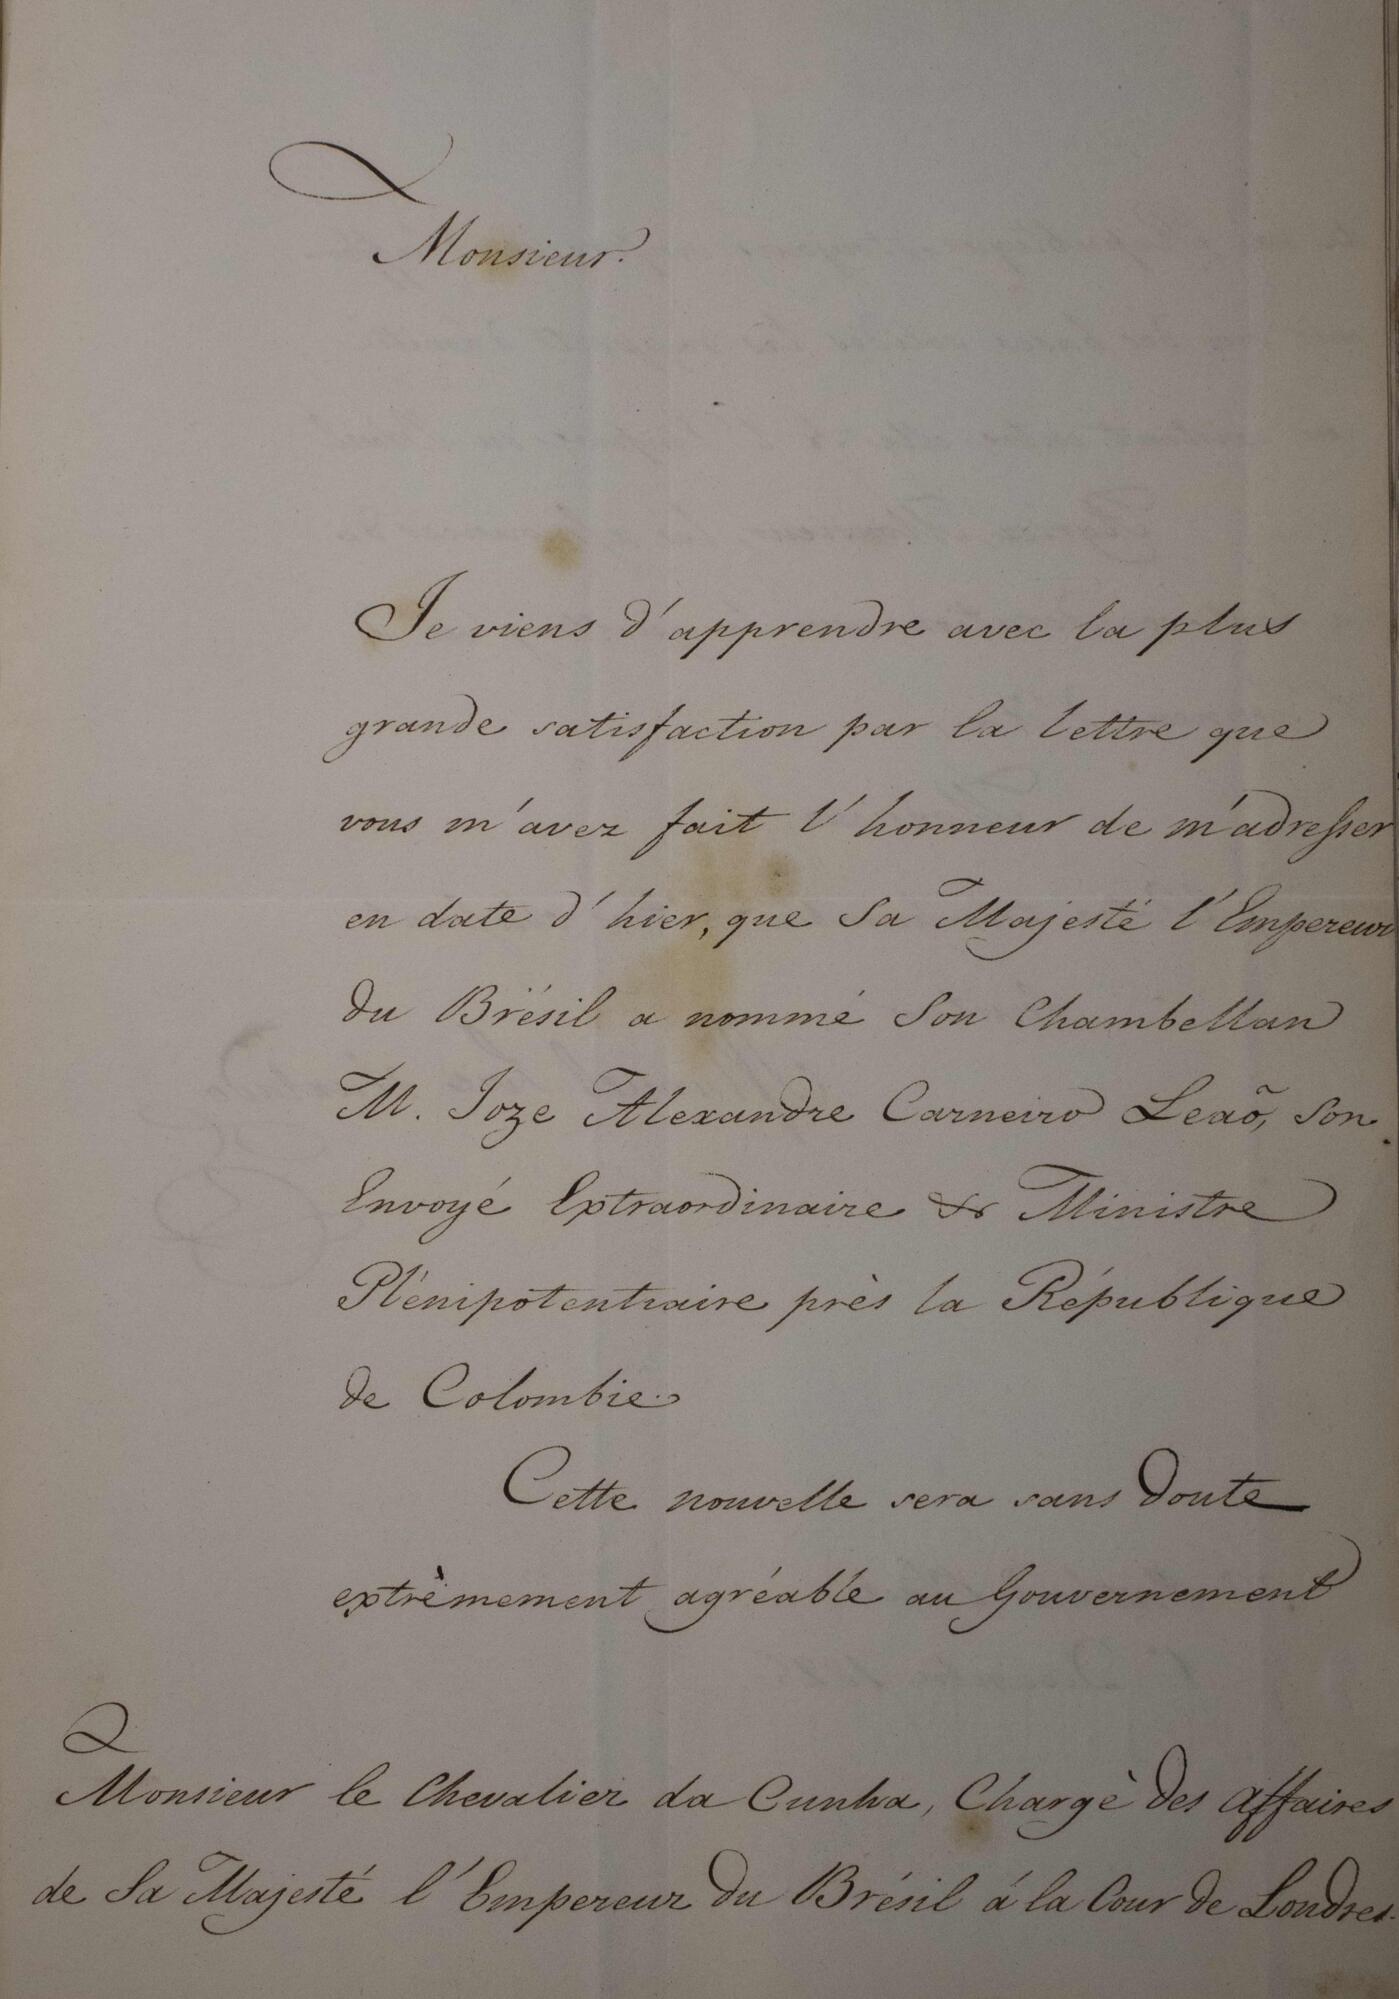 Monsieur.
Je viens d'apprendre avec la plus
grande satisfaction par la lettre que
vous m'avez fait l'honneur de m'adresser
en date d'hier, que Sa Majesté l'Empereur
du Brésil a nommé Son Chambellan
M. Joze Alexandre Carneiro Leaõ, Son
Envoyé Extraordinaire & Ministre
Plénipotentiaire près la République
de Colombie.
Cette nouvelle sera sans doute
extrèmement agréable au Gouvernement
Monsieur le Chevalier da Cunha, Chargè des affaires
de Sa Majesté l'Empereur du Brésil á la Cour de Londres.